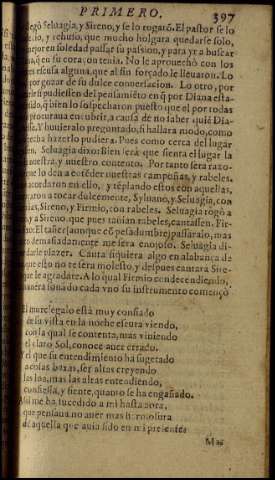 PRIMERO. 397
llegò Seluagia, y Sireno, y se lo rogarõ. El pastor se lo
y rehuso, que mucho holgara quedarse solo,
mejor en soledad passar su passion, y para yr a buscar
en su coraçon tenia. No le aprouechò con los
escusa alguna, que al fin forçado le lleuaron. Lo
gozar de su dulce conuersacion. Lo otro, por
si pudiessen del pensamiento en q̃ por Diana esta-
q̃ bien lo sospecharon puesto que el por todas
procuraua encubrir, a causa de no saber quiē Dia-
Y huuieralo preguntado, si hallara modo, como
hazerlo pudiera. Pues como cerca del lugar
Seluagia dixo: Bien sera que sienta el lugar la
nuestra, y nuestro contento. Por tanto sera razon
que lo den a entēder nuestras campoñas, y rabeles.
acordaron en ello, y tēplando estos con aquellas,
a tocar dulcemente, Syluano, y Seluagia, con
Sireno, y Firmio, con rabeles. Seluagia rogò a
y a Sireno, que pues tañian rabeles, cantassen. Fir-
El tañer (aunque cõ pesadumbre) passaralo, mas
demasiadamente me sera enojoso. Seluagia di-
plazer. Canta siquiera algo en alabança de
que esso no te sera molesto, y despues cantara Sire-
que le agradare. A lo qual Firmio condecendiendo,
sonādo cada vno su instrumento començò
El murciegalo està muy confiado
de su vista en la noche escura viendo,
con la qual se contenta, mas viniendo
el claro Sol, conoce auer errado.
Y el que su entendimiento ha sugetado
a cosas baxas, ser altas creyendo
las loa, mas las altas entendiendo,
confiessa, y siente, quanto se ha engañado.
Assi me ha sucedido a mi hasta aora,
que pensaua no auer mas hermosura
de aquella que auia sido en mi presente:
Mas